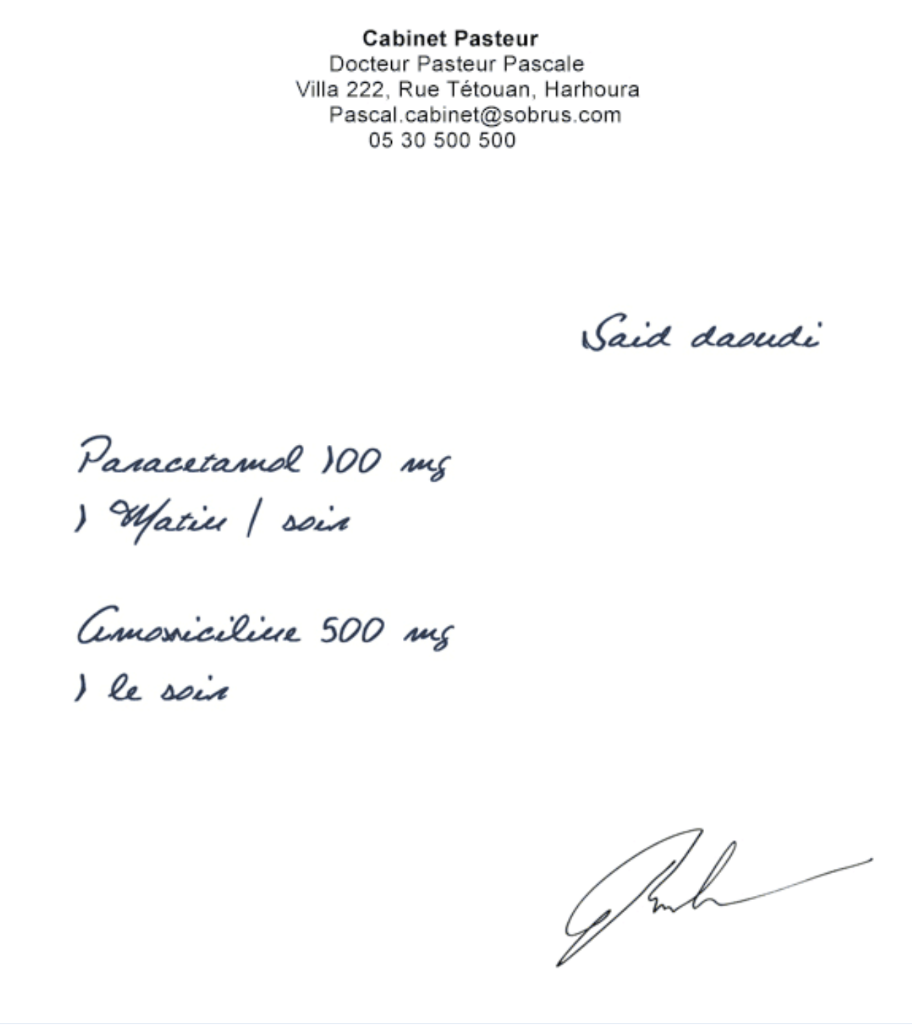 Cabinet Pasteur
Docteur Pasteur Pascale
Villa 222, Rue Tétouan, Harhoura
Pascal.cabinet@sobrus.com
05 30 500 500
Said daoudi
Paracetamol 100 mg
1 Matin / soir
Amoxiciline 500 mg
1 le soir